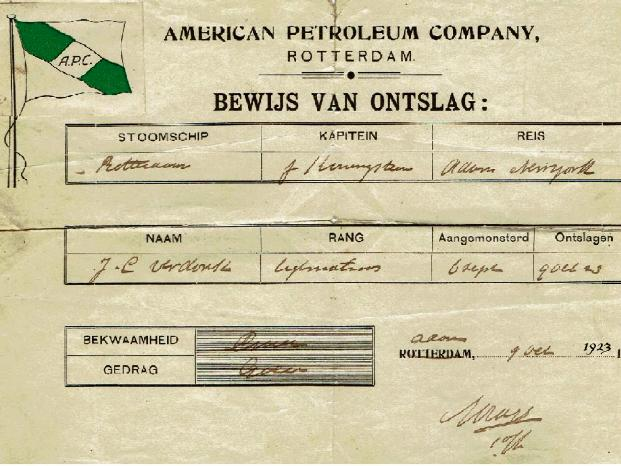 A.P.C.
AMERICAN PETROLEUM COMPANY,
ROTTERDAM.
BEWIJS VAN ONTSLAG:
STOOMSCHIP KAPITEIN REIS
Rotterdam J Adam Newyork
NAAM RANG Aangemonsterd Ontslagen
J. C Verdonk lichtmatroos 6 sept 9 oct 23
BEKWAAMHEID
GEDRAG Goed
Adam
ROTTERDAM, 9 Oct 1923